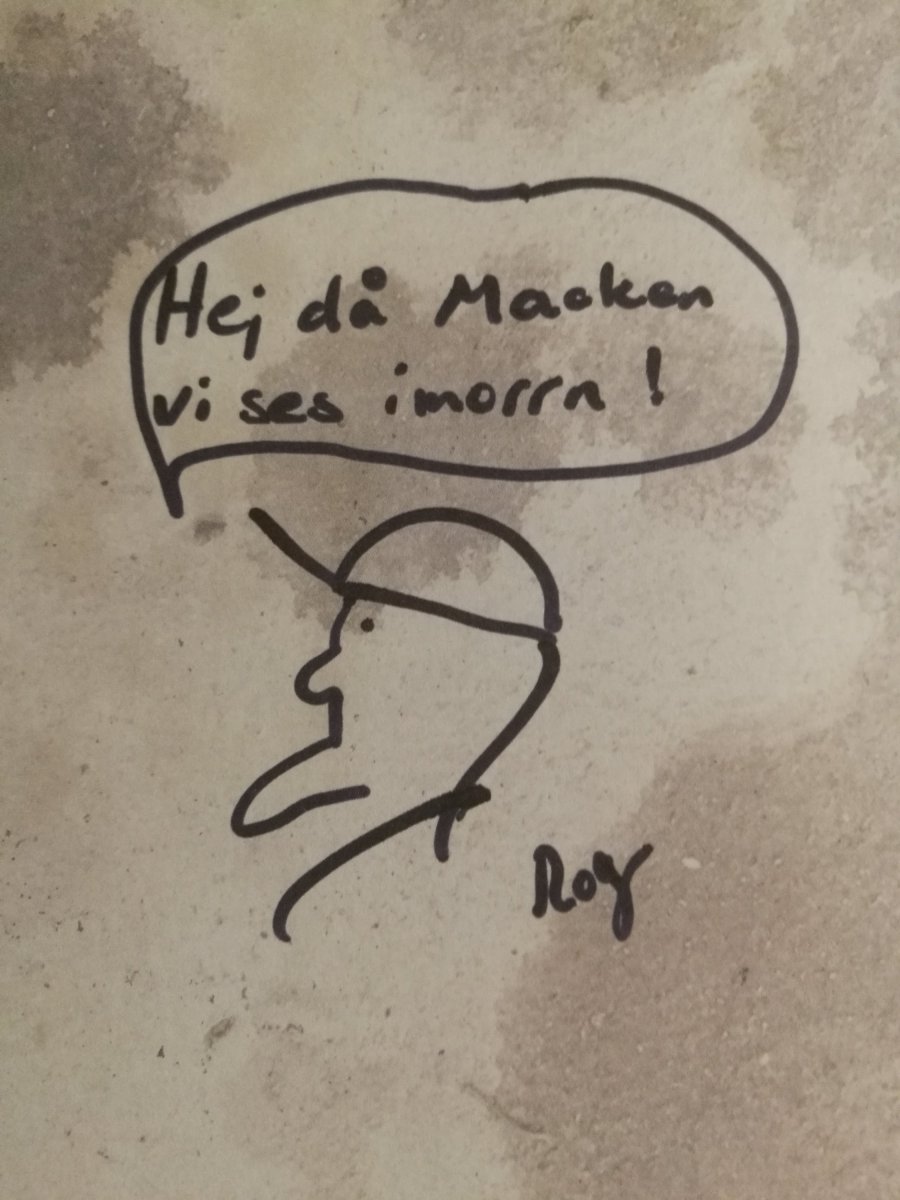 Hej då Macken
vi ses imorrn!
Roy